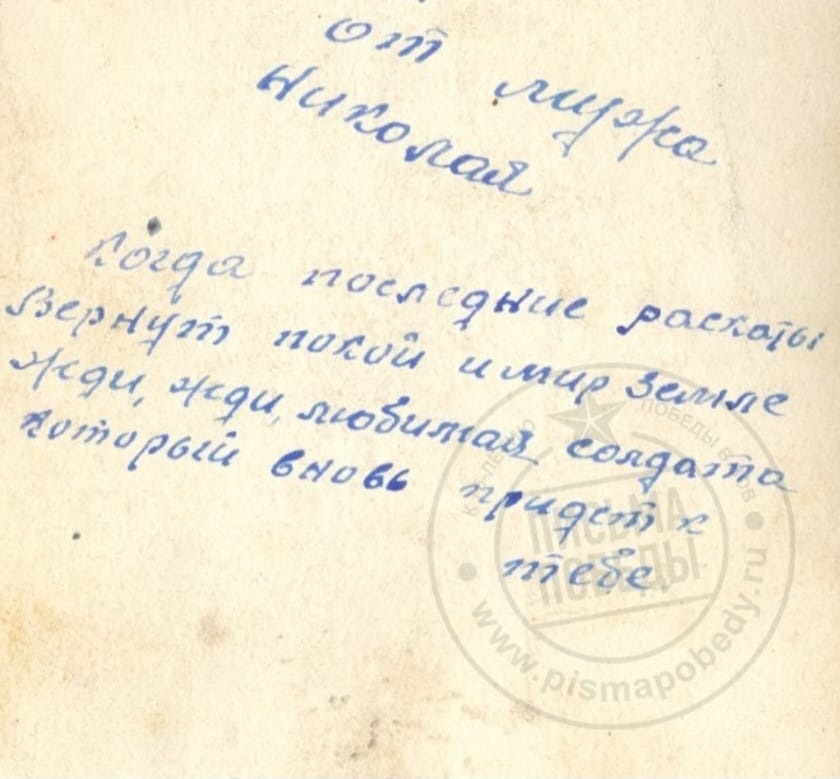 от мужа
Николая
Когда последние раскаты
Вернут покой и мир Земле
Жди, жди, любимая солдата
который вновь придет к
тебе
ПИСЬМА
ПОБЕДЫ
www.pismapobedy.ru